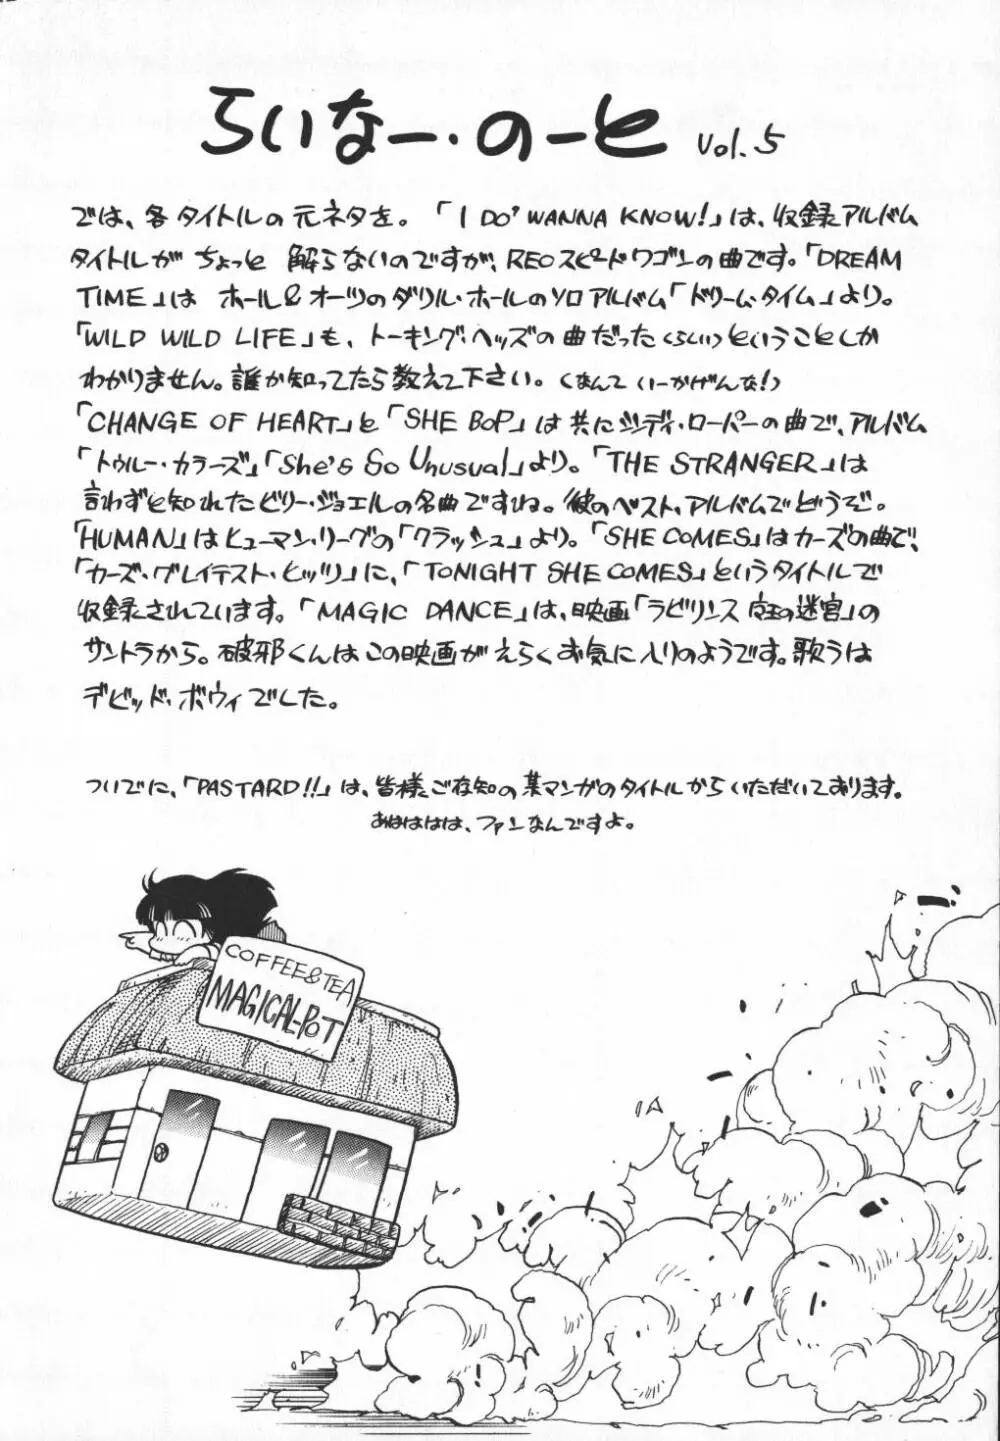 らいなー・のーと vol.5
では、各タイトルの元ネタを。「I DO'WANNA KNOW!」は、収録アルバム
タイトルがちょっと解らないのですが、REOスピードワゴンの曲です。「DREAM
TIME」はホール&オーツのダリル・ホールのソロアルバム「ドリーム・タイム」より。
「WILD WILD LIFE」も、トーキング・ヘッズの曲だった(らしい)ということしか
わかりません。誰か知ってたら教えて下さい。(なんていーかげんな!)
「CHANGE OF HEART」と「SHE BOP」は共にシンディ・ローパーの曲で、アルバム
「トゥルー・カラーズ」「She's So Unusual」より。「THE STRANGER」は
言わずと知れたビリー・ジョエルの名曲ですね。彼のベスト・アルバムでどうぞ。
「HUMAN」はヒューマン・リーグの「クラッシュ」より。「SHE COMES」はカーズの曲で、
「カーズ・グレイテスト・ヒッツ」に、「TONIGHT SHE COMES」というタイトルで
収録されています。「MAGIC DANCE」は、映画「ラビリンス 魔王の迷宮」の
サントラから。破邪くんはこの映画がえらくお気に入りのようです。歌うは
デビッド・ボウィでした。
ついでに、「PASTARD!!」は、皆様ご存知の某マンガのタイトルからいただいております。
あはははは、ファンなんですよ。
COFFEE&TEA
MAGICAL-POT